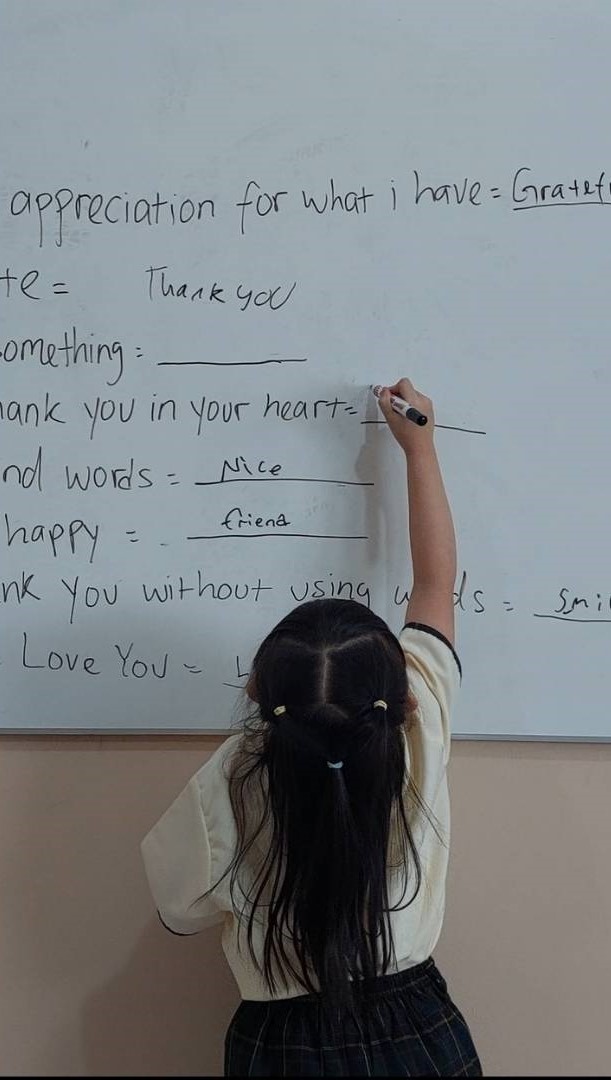 appreciation for what i have = Gratef
te = Thank you
omething =
ank you in your heart =
nd words = Nice
happy = friend
nk you without using ds = Smi
Love You = L